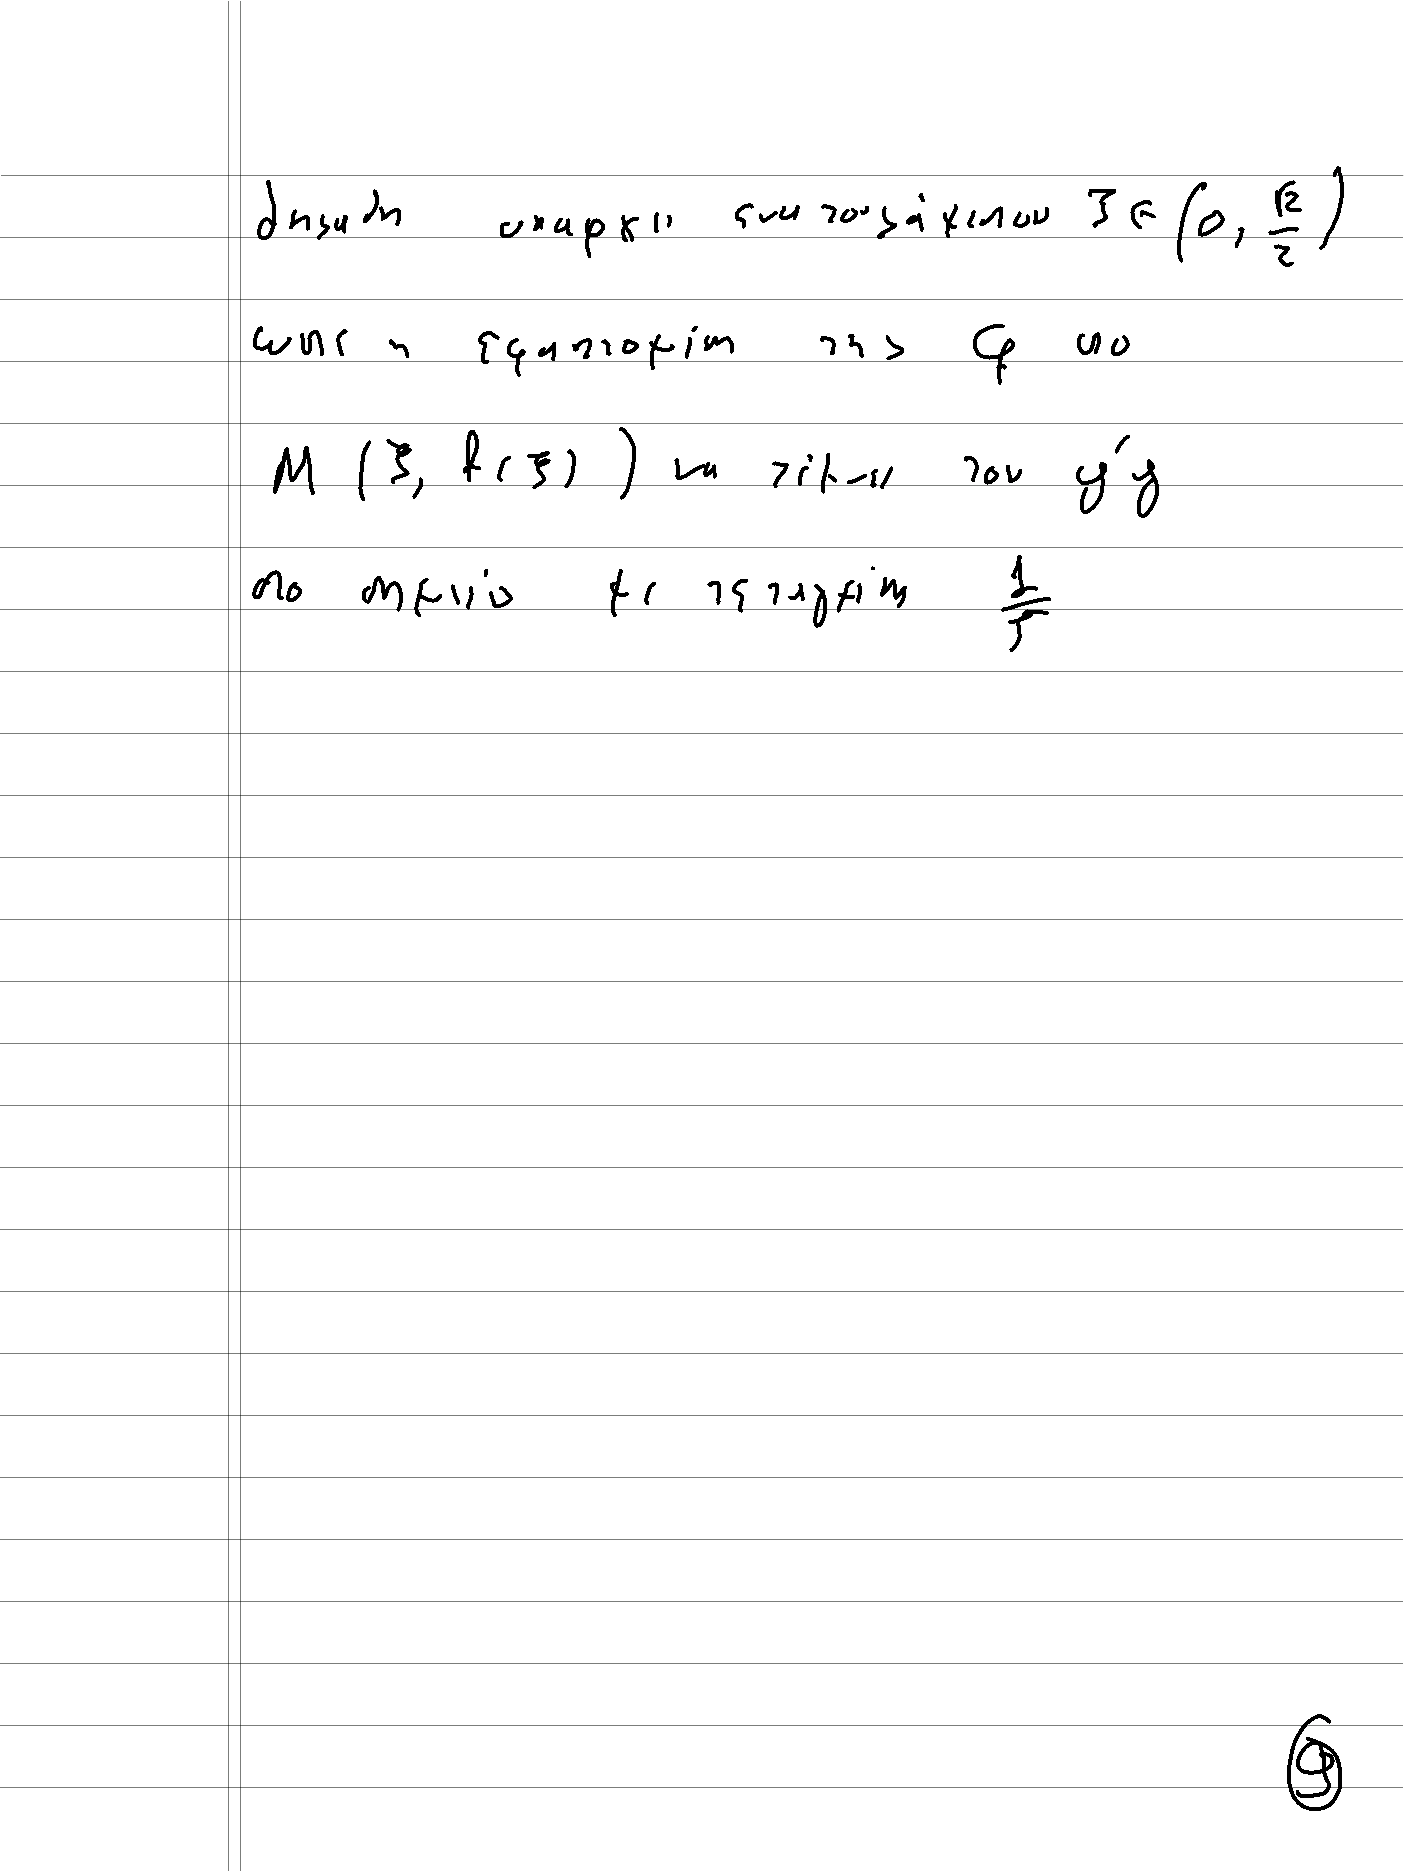 δηλαδή υπάρχει ένα τουλάχιστον ξ ∈ (0, √2/2)
ώστε η εφαπτομένη της Cφ στο
M (ξ, f(ξ)) να τέμνει τον y'y
στο σημείο με τεταγμένη 1/5
9